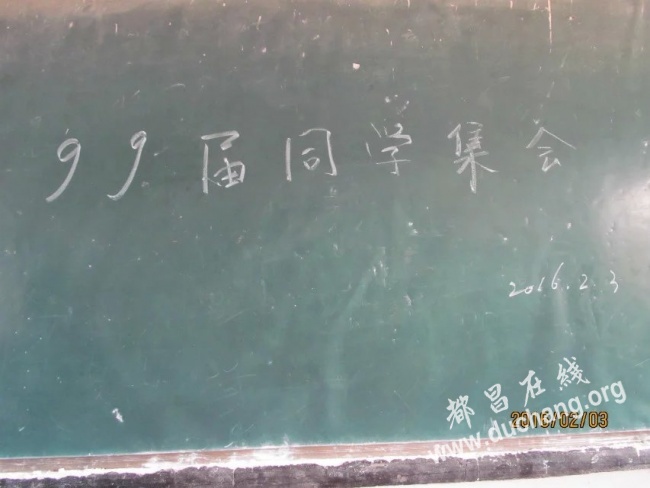 99届同学集会
2016.2.3
都昌在线
2016/02/03
www.duchang.org